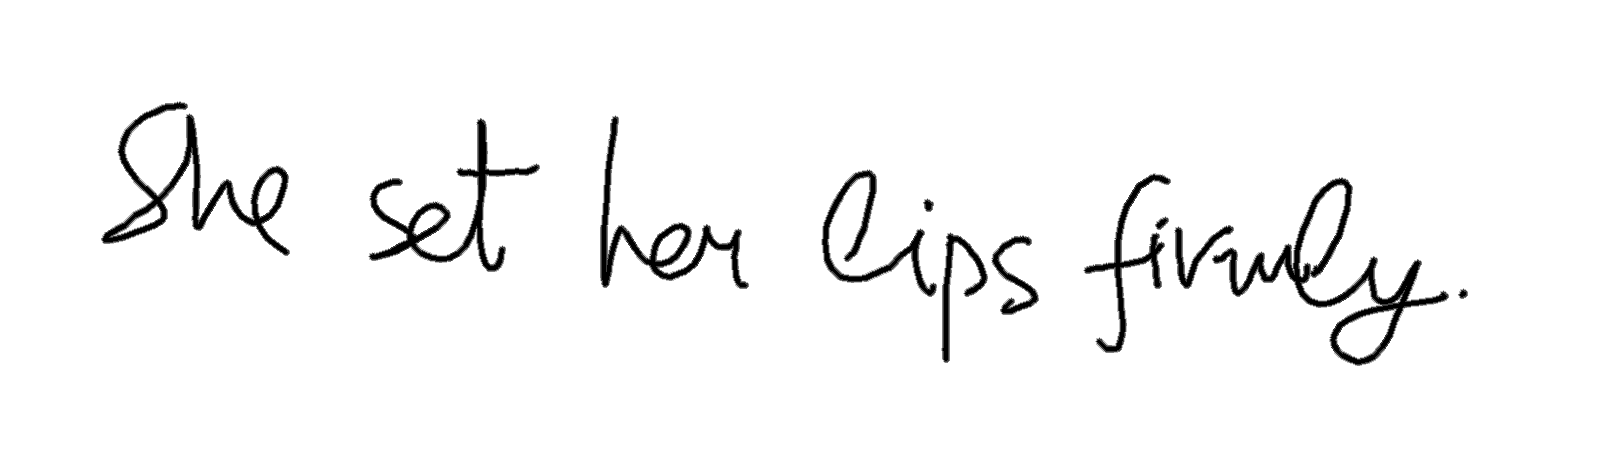 She set her lips firmly.